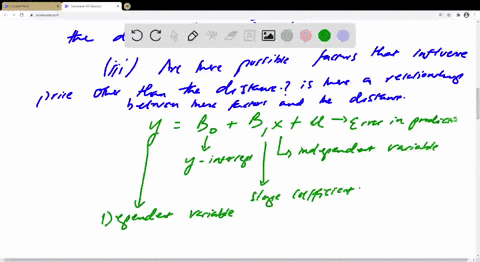 the d
(iii) Are there possible factors that influence
price other than the distance? is there a relationship
between these factors and the distance.
y = B₀ + B₁x + u → Error in predicti
independent variable
y-intercept
slope coefficient.
Dependent variable